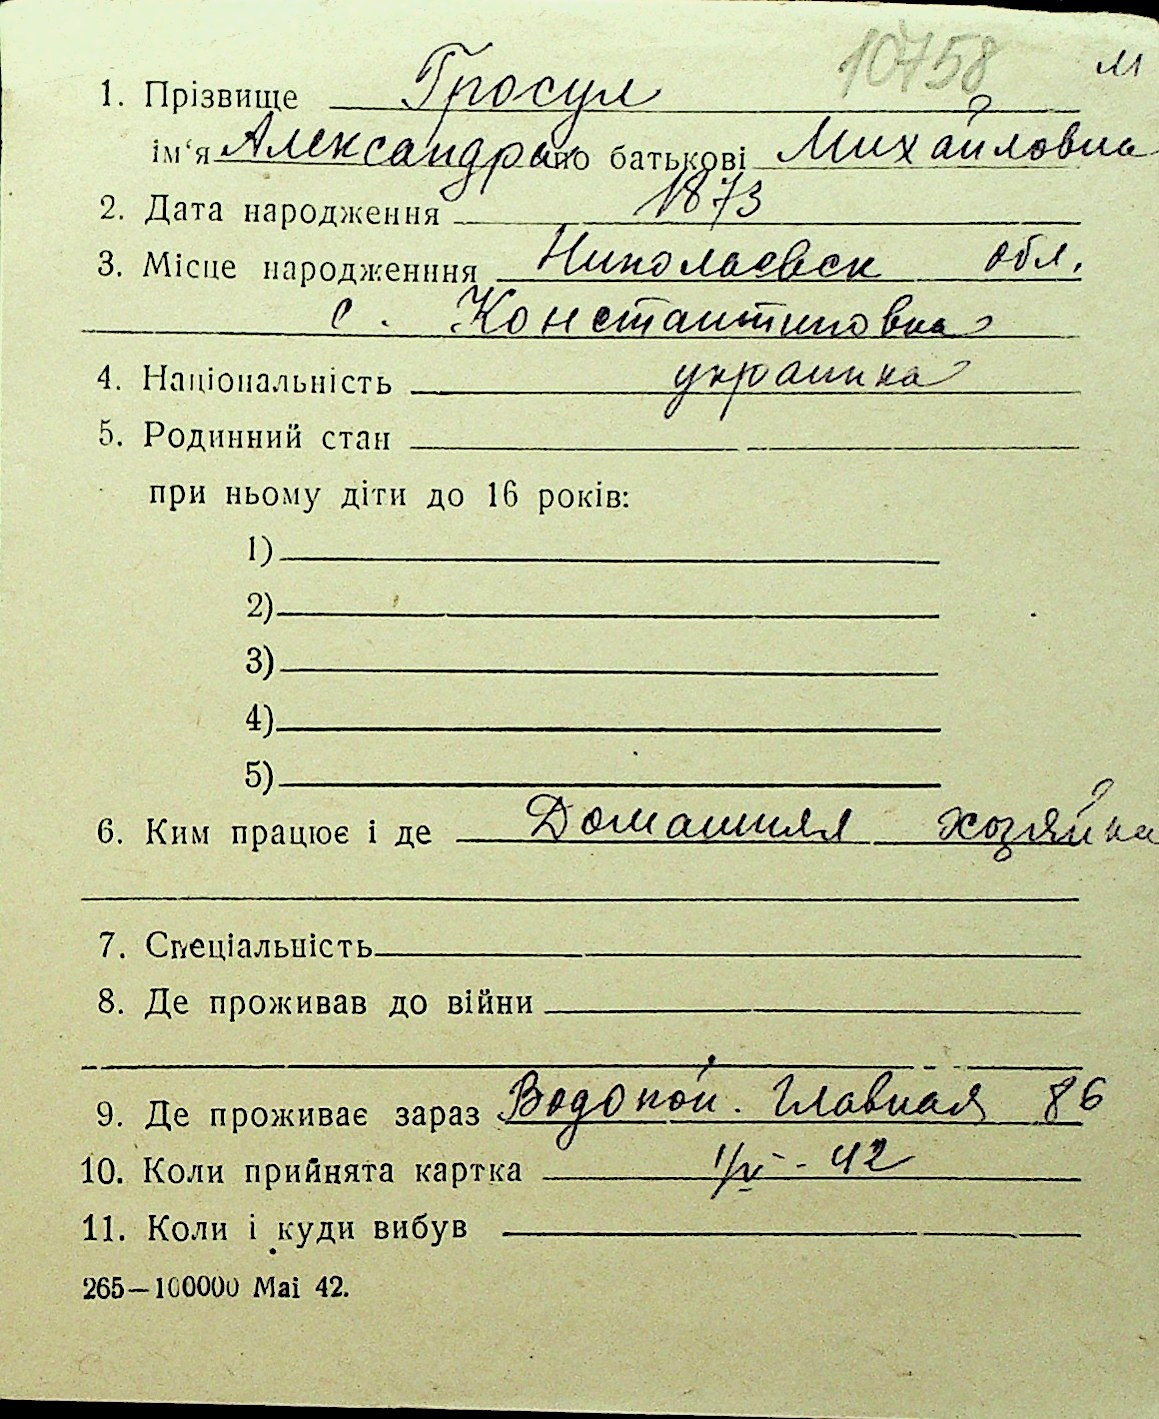 10758 м
1. Прізвище Гросул
ім‘я Александра по батькові Михайловна
2. Дата народження 1873
3. Місце народженння Николаевск обл.
с. Константиновка
4. Національність украинка
5. Родинний стан
при ньому діти до 16 років:
1)
2)
3)
4)
5)
6. Ким працює і де Домашняя хозяйка
7. Спеціальність
8. Де проживав до війни
9. Де проживає зараз Водопой. Главная 86
10. Коли прийнята картка - 42
11. Коли і куди вибув
265—100000 Маі 42.